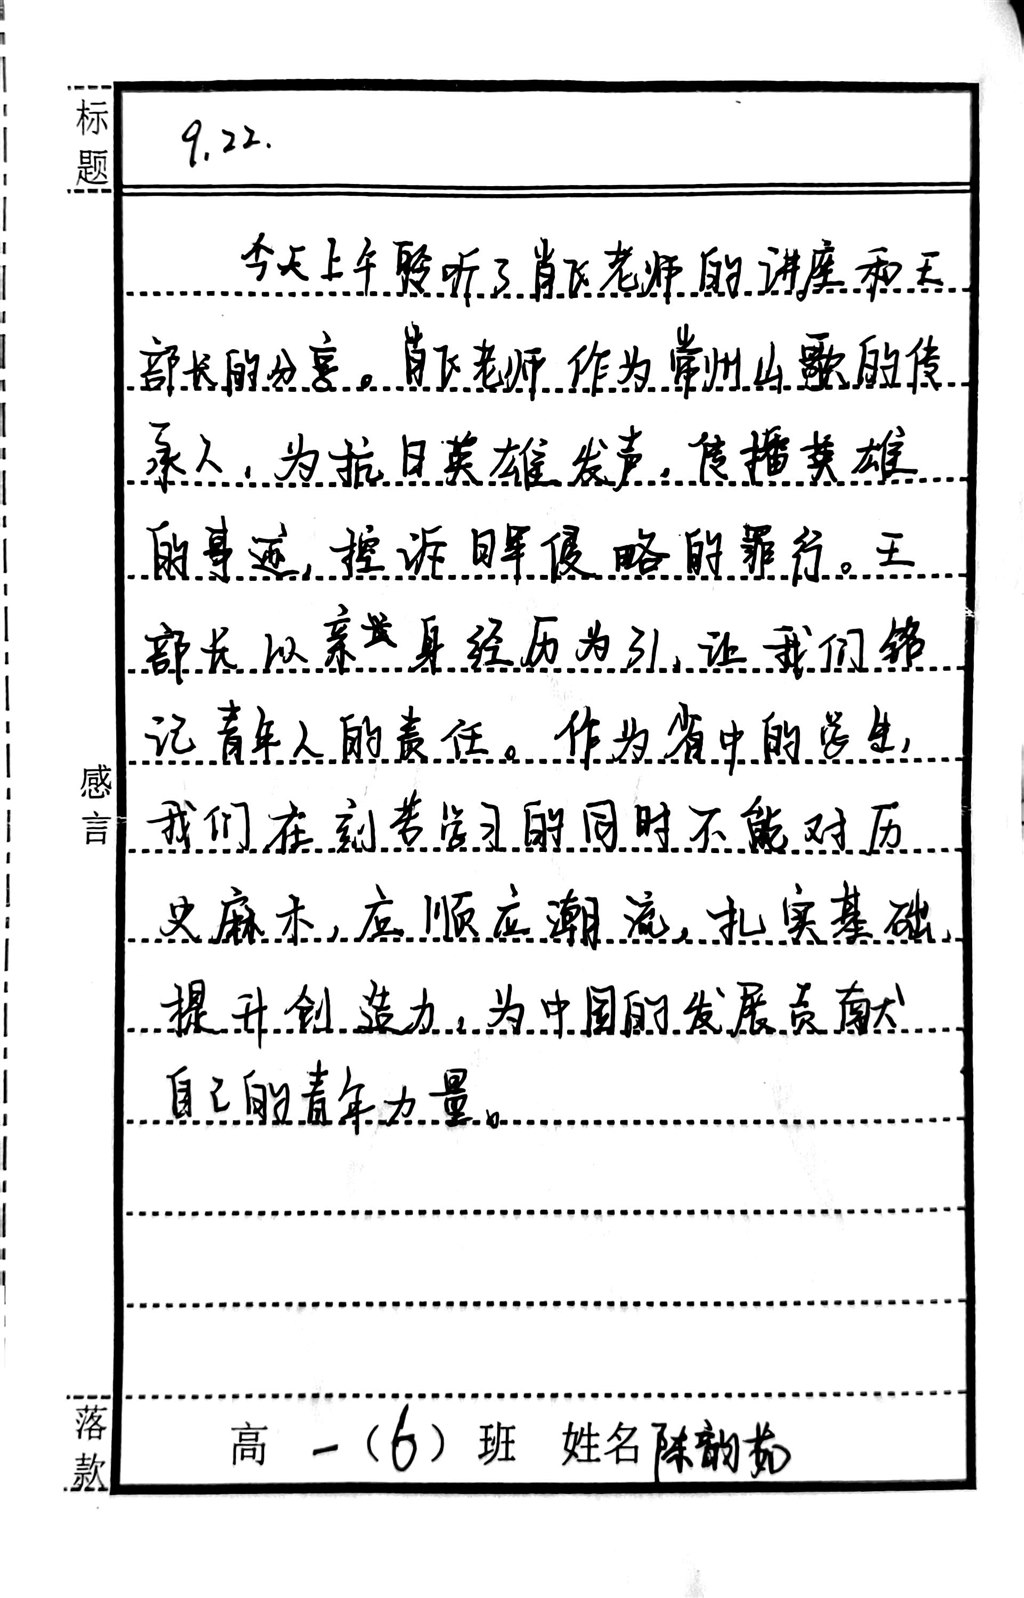 标题
9.22.
今天上午聆听了肖飞老师的讲座和王
部长的分享。肖飞老师作为常州山歌的传
承人,为抗日英雄发声,传播英雄
的事迹,控诉日军侵略的罪行。王
部长以亲身经历为引,让我们铭
记青年人的责任。作为省中的学生,
我们在刻苦学习的同时不能对历
史麻木,应顺应潮流,扎实基础,
提升创造力,为中国的发展贡献
自己的青年力量。
感言
落款
高一(6)班 姓名陈韵茹